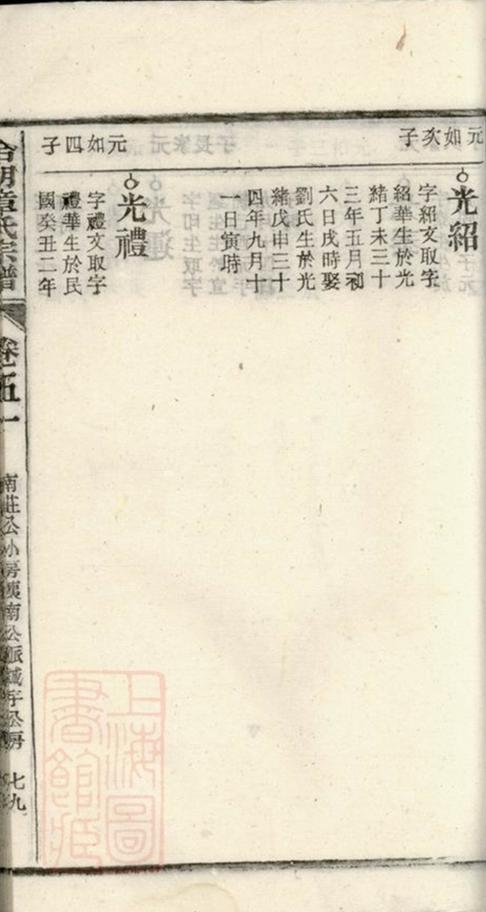 元如次子
光紹
字紹文取字
紹華生於光
緒丁未三十
三年五月初
六日戌時娶
劉氏生於光
緒戊申三十
四年九月十
一日寅時
元如四子
光禮
字禮文取字
禮華生於民
國癸丑二年
合朋袁氏宗譜
卷五一
南莊公小房
南公派
宇公房
七九
上海圖書館藏